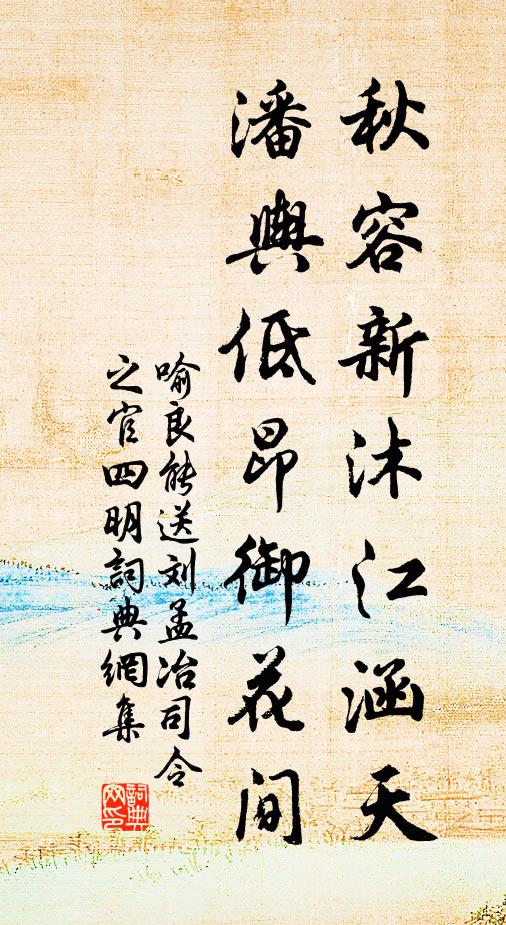 秋容新沐江涵天
潘輿低昂御花间
喻良能送刘孟冶司令
之官四明詞典網集
詞典
网印